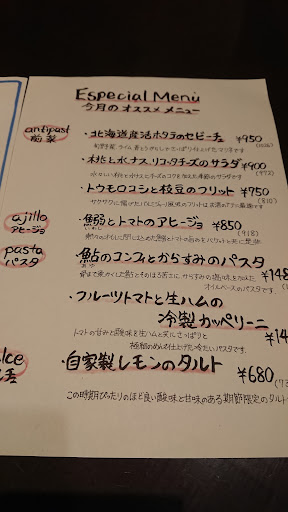 Especial Menù
今月のオススメメニュー
antipast
前菜
・北海道産活ホタテのセビーチェ ¥950
・桃と水ナス、リコッタチーズのサラダ ¥900
(972)
・トウモロコシと枝豆のフリット ¥750
(810)
ajillo
アヒージョ
・鰯とトマトのアヒージョ ¥850
いわし
(918)
pasta
パスタ
・鮎のコンフとからすみのパスタ
あゆ
¥148
オイルベースのパスタです.
・フルーツトマトと生ハムの
冷製カッペリーニ
¥14
トマトの甘みと酸味を生ハムと共にさっぱりと
極細のめんで仕上げた冷たいパスタです.
lce
・自家製レモンのタルト
¥680
この時期ぴったりのほど良い酸味と甘味のある期間限定のタルト